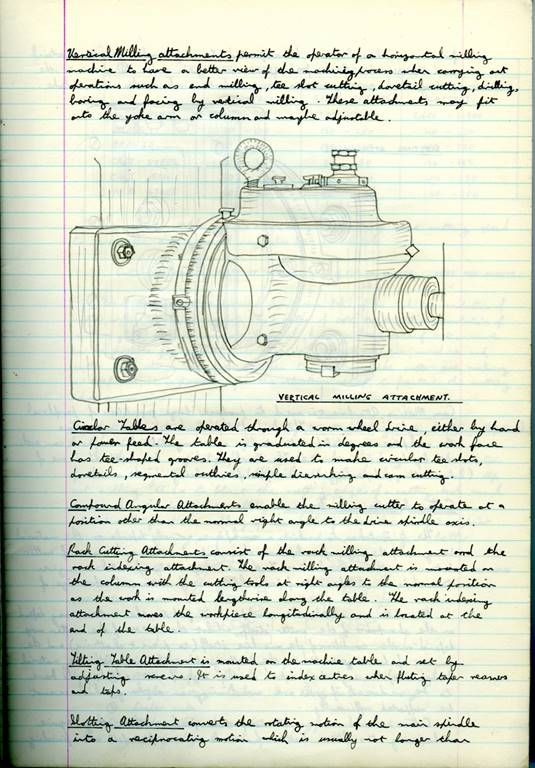 Vertical Milling attachments permit the operator of a horizontal milling
machine to have a better view of the machining process when carrying out
operations such as end milling, tee slot cutting, dovetail cutting, drilling,
boring and facing by vertical milling. These attachments may fit
onto the yoke arm or column and maybe adjustable.
VERTICAL MILLING ATTACHMENT.
Circular Tables are operated through a worm wheel drive, either by hand
or power feed. The table is graduated in degrees and the work face
has tee-shaped grooves. They are used to make circular tee slots,
dovetails, segmental outlines, simple diesinking and cam cutting.
Compound Angular Attachments enable the milling cutter to operate at a
position other than the normal right angle to the drive spindle axis.
Rack Cutting Attachments consist of the rack milling attachment and the
rack indexing attachment. The rack milling attachment is mounted on
the column with the cutting tools at right angles to the normal position
as the work is mounted lengthwise along the table. The rack indexing
attachment moves the workpiece longitudinally and is located at the
end of the table.
Tilting Table Attachment is mounted on the machine table and set by
adjusting screws. It is used to index when fluting taper reamers
and taps.
Slotting Attachment converts the rotating motion of the main spindle
into a reciprocating motion which is usually not longer than